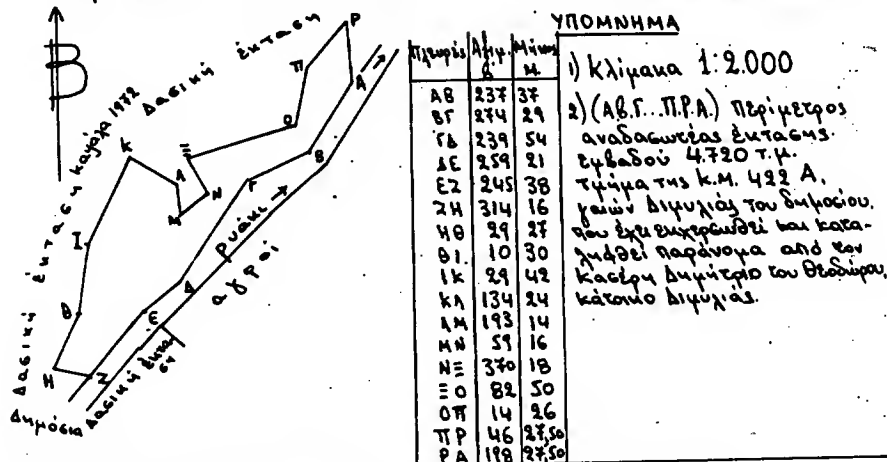 Β
Δασική έκταση
Δασική έκταση καψάλα 1972
Ρ
Π
Α
Ο
Ξ
Κ
Λ
Ν
Μ
Β
Γ
Ι
Δ
Θ
Ε
Η
Ζ
ρυάκι →
αγροί
Δημόσια Δασική έκτα
ση
ΥΠΟΜΝΗΜΑ
Πλευρές Αζιμ. Μήκος
β Μ
ΑΒ 237 37
ΒΓ 274 29
ΓΔ 239 54
ΔΕ 259 21
ΕΖ 245 38
ΖΗ 314 16
ΗΘ 29 27
ΘΙ 10 30
ΙΚ 29 42
ΚΛ 134 24
ΛΜ 193 14
ΜΝ 59 16
ΝΞ 370 18
ΞΟ 82 50
ΟΠ 14 26
ΠΡ 46 27,50
ΡΑ 198 27,50
1) Κλίμακα 1:2.000
2) (Α.Β.Γ...Π.Ρ.Α.) Περίμετρος
αναδασωτέας έκτασης
εμβαδού 4.720 τ.μ.
τμήμα της Κ.Μ. 422 Α,
γαιών Διμυλιάς του δημοσίου,
που έχει εκχερσωθεί και κατα-
ληφθεί παράνομα από τον
Κασέρη Δημήτριο του Θεοδώρου,
κάτοικο Διμυλιάς.